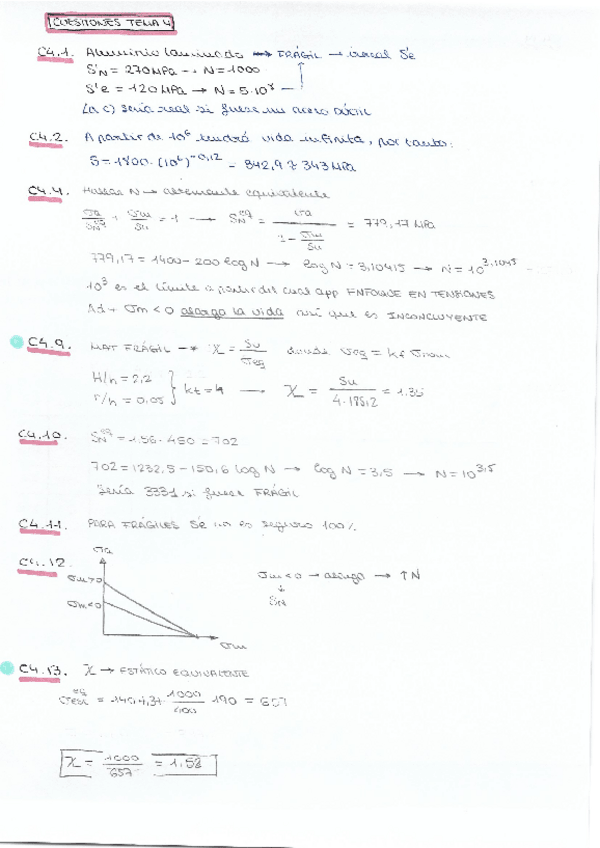 CUESTIONES TEMA 4
C4.1. Aluminio laminado → FRÁGIL → irreal S'e
S'N = 270 MPa → N = 1000
S'e = 120 MPa → N = 5·10⁸
(a c) sería real si fuese un acero dúctil
C4.2. A partir de 10⁶ tendrá vida infinita, por tanto:
S = 1800·(10⁶)^-0,12 = 342,9 ≈ 343 MPa
C4.4. Hallar N → alternante equivalente
σa/SN^eq + σm/Su = 1 → SN^eq = σa/(1 - σm/Su) = 779,17 MPa
779,17 = 1400 - 200 log N → log N = 3,10415 → N = 10^3,1045
10³ es el límite a partir del cual app ENFOQUE EN TENSIONES
Ad+ σm < 0 alarga la vida así que es INCONCLUYENTE
C4.9. MAT FRÁGIL → X = Su/σeq donde σeq = kf σnom
H/h = 2,2
r/h = 0.05 } kt = 4 → X = Su/(4·185,2) = 1.35
C4.10. SN^eq = 1.56·450 = 702
702 = 1232,5 - 150,6 log N → log N = 3,5 → N = 10^3,5
Sería 3331 si fuese FRÁGIL
C4.11. PARA FRÁGILES S'e no es seguro 100%
C4.12. σa
σm>0
σm<0
σm
σm<0 → alarga → ↑N
↓
SN
C4.13. X → ESTÁTICO EQUIVALENTE
190 = 657
X = 1000/657 = 1.52